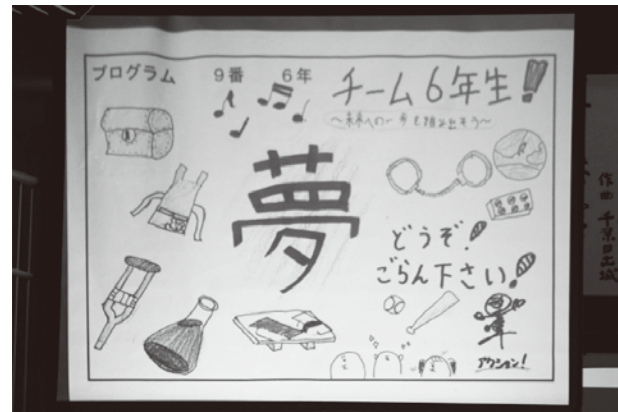 プログラム 9番 6年
チーム6年生!
〜未来への一歩を踏み出そう〜
夢
どうぞ!
ごらん下さい!
アクション!
作曲 千葉日出城